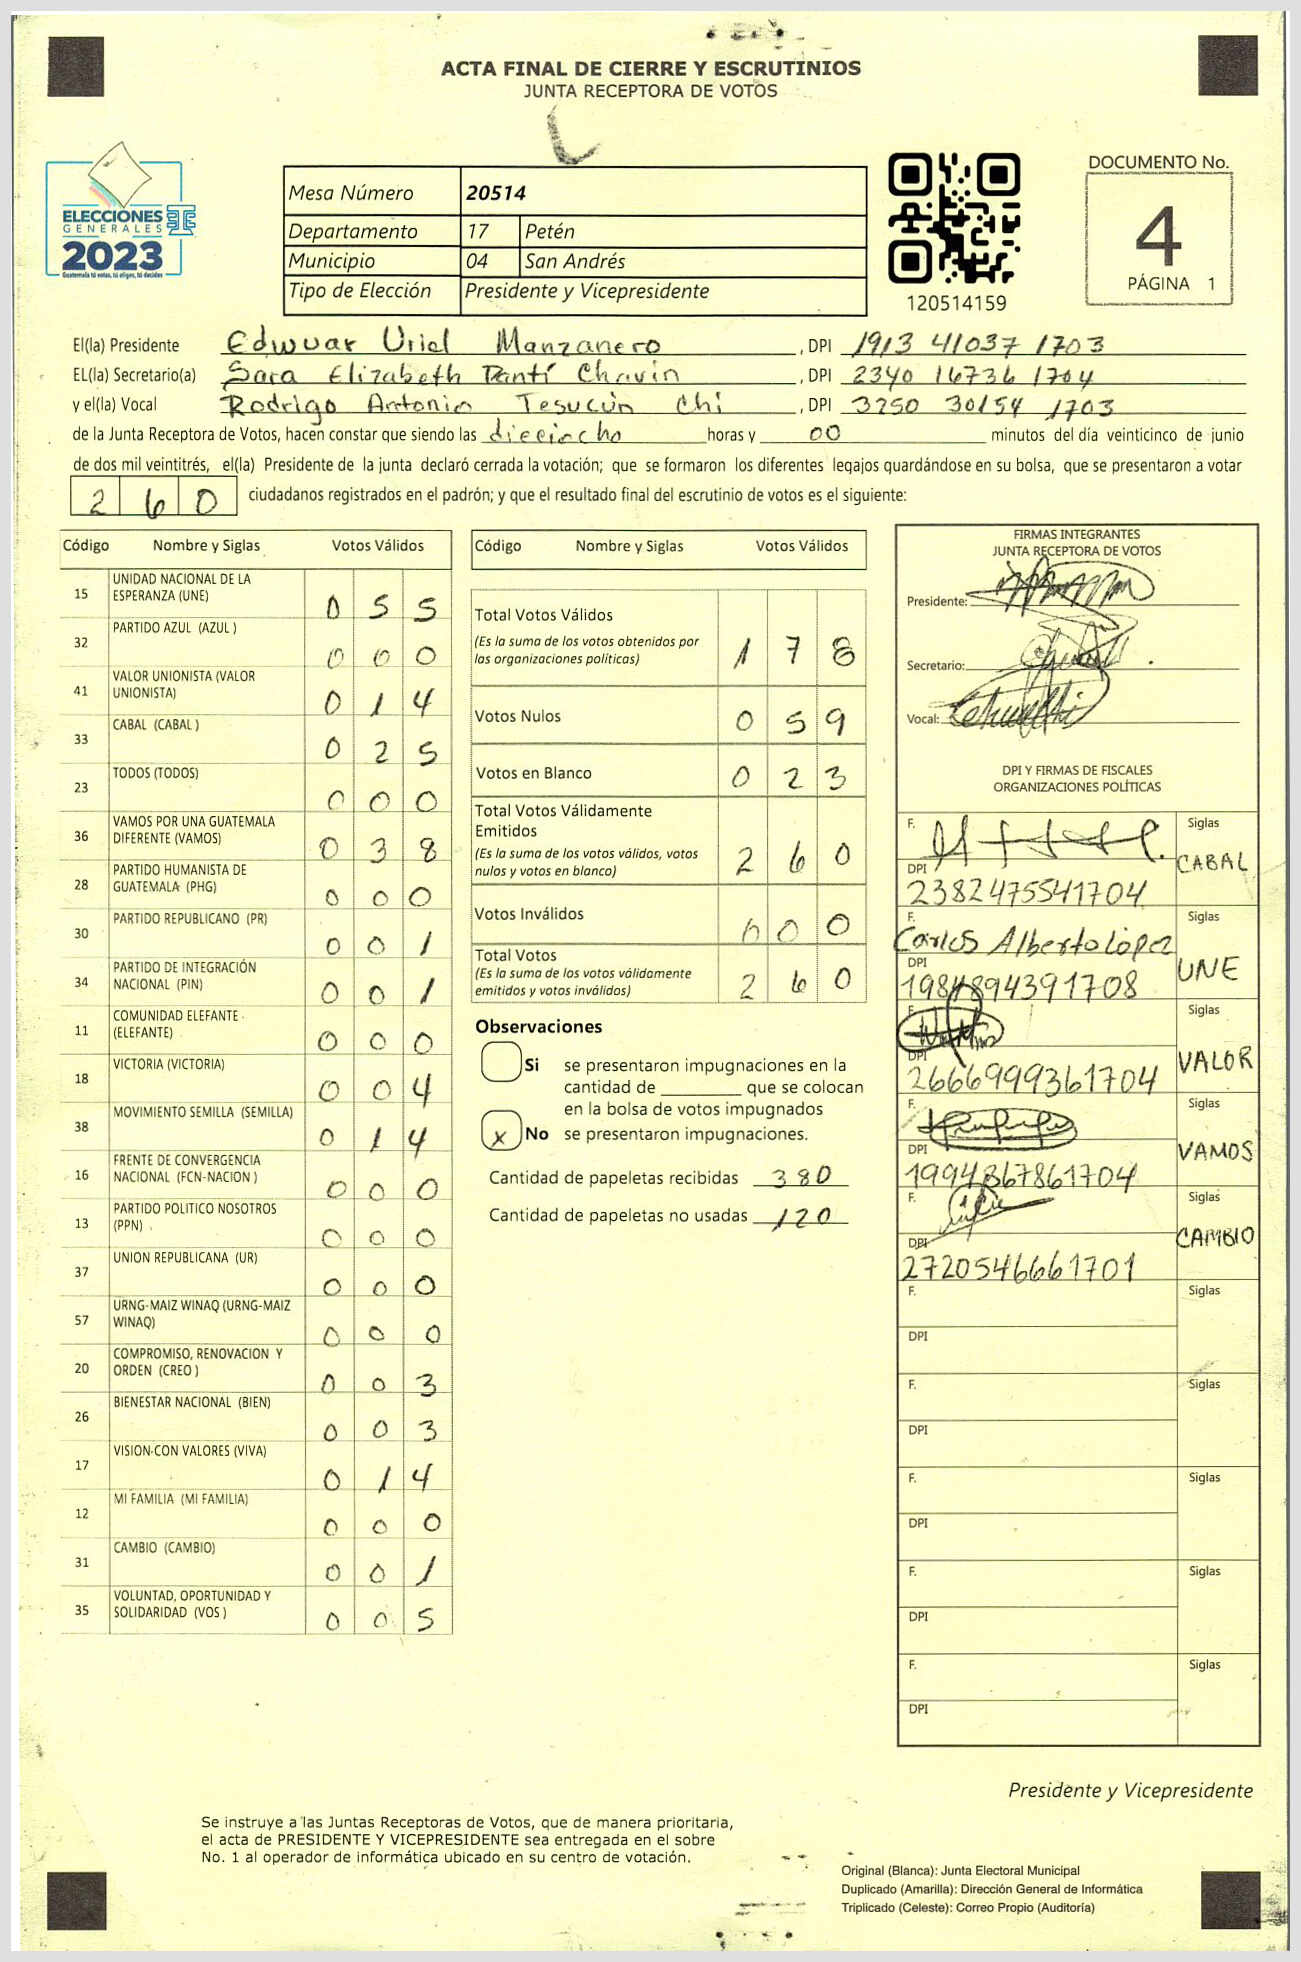 ACTA FINAL DE CIERRE Y ESCRUTINIOS
JUNTA RECEPTORA DE VOTOS
ELECCIONES
GENERALES
2023
Guatemala tú votas, tú eliges, tú decides
Mesa Número 20514
Departamento 17 Petén
Municipio 04 San Andrés
Tipo de Elección Presidente y Vicepresidente
120514159
DOCUMENTO No.
4
PÁGINA 1
El(la) Presidente Edwuar Uriel Manzanero, DPI 1913 41037 1703
EL(la) Secretario(a) Sara Elizabeth Pantí Chavin, DPI 2340 16736 1704
y el(la) Vocal Rodrigo Antonio Tesucún Chi, DPI 3250 30154 1703
de la Junta Receptora de Votos, hacen constar que siendo las dieciocho horas y 00 minutos del día veinticinco de junio
de dos mil veintitrés, el(la) Presidente de la junta declaró cerrada la votación; que se formaron los diferentes legajos guardándose en su bolsa, que se presentaron a votar
260 ciudadanos registrados en el padrón; y que el resultado final del escrutinio de votos es el siguiente:
Código Nombre y Siglas Votos Válidos
15 UNIDAD NACIONAL DE LA ESPERANZA (UNE) 0 5 5
32 PARTIDO AZUL (AZUL ) 0 0 0
41 VALOR UNIONISTA (VALOR UNIONISTA) 0 1 4
33 CABAL (CABAL ) 0 2 5
23 TODOS (TODOS) 0 0 0
36 VAMOS POR UNA GUATEMALA DIFERENTE (VAMOS) 0 3 8
28 PARTIDO HUMANISTA DE GUATEMALA (PHG) 0 0 0
30 PARTIDO REPUBLICANO (PR) 0 0 1
34 PARTIDO DE INTEGRACIÓN NACIONAL (PIN) 0 0 1
11 COMUNIDAD ELEFANTE (ELEFANTE) 0 0 0
18 VICTORIA (VICTORIA) 0 0 4
38 MOVIMIENTO SEMILLA (SEMILLA) 0 1 4
16 FRENTE DE CONVERGENCIA NACIONAL (FCN-NACION ) 0 0 0
13 PARTIDO POLITICO NOSOTROS (PPN) 0 0 0
37 UNION REPUBLICANA (UR) 0 0 0
57 URNG-MAIZ WINAQ (URNG-MAIZ WINAQ) 0 0 0
20 COMPROMISO, RENOVACION Y ORDEN (CREO ) 0 0 3
26 BIENESTAR NACIONAL (BIEN) 0 0 3
17 VISION CON VALORES (VIVA) 0 1 4
12 MI FAMILIA (MI FAMILIA) 0 0 0
31 CAMBIO (CAMBIO) 0 0 1
35 VOLUNTAD, OPORTUNIDAD Y SOLIDARIDAD (VOS ) 0 0 5
Código Nombre y Siglas Votos Válidos
Total Votos Válidos 1 7 8
(Es la suma de los votos obtenidos por
las organizaciones políticas)
Votos Nulos 0 5 9
Votos en Blanco 0 2 3
Total Votos Válidamente
Emitidos 2 6 0
(Es la suma de los votos válidos, votos
nulos y votos en blanco)
Votos Inválidos 0 0 0
Total Votos 2 6 0
(Es la suma de los votos válidamente
emitidos y votos inválidos)
Observaciones
Si se presentaron impugnaciones en la
cantidad de ________ que se colocan
en la bolsa de votos impugnados
x No se presentaron impugnaciones.
Cantidad de papeletas recibidas 380
Cantidad de papeletas no usadas 120
FIRMAS INTEGRANTES
JUNTA RECEPTORA DE VOTOS
Presidente:
Secretario:
Vocal:
DPI Y FIRMAS DE FISCALES
ORGANIZACIONES POLÍTICAS
F. Siglas
CABAL
DPI
2382475541704
F. Siglas
Carlos Alberto López
UNE
DPI
1984894391708
F. Siglas
VALOR
DPI
2666999361704
F. Siglas
VAMOS
DPI
1994867861704
F. Siglas
CAMBIO
DPI
2720546661701
F. Siglas
DPI
F. Siglas
DPI
F. Siglas
DPI
F. Siglas
DPI
F. Siglas
DPI
Presidente y Vicepresidente
Se instruye a las Juntas Receptoras de Votos, que de manera prioritaria,
el acta de PRESIDENTE Y VICEPRESIDENTE sea entregada en el sobre
No. 1 al operador de informática ubicado en su centro de votación.
Original (Blanca): Junta Electoral Municipal
Duplicado (Amarilla): Dirección General de Informática
Triplicado (Celeste): Correo Propio (Auditoría)